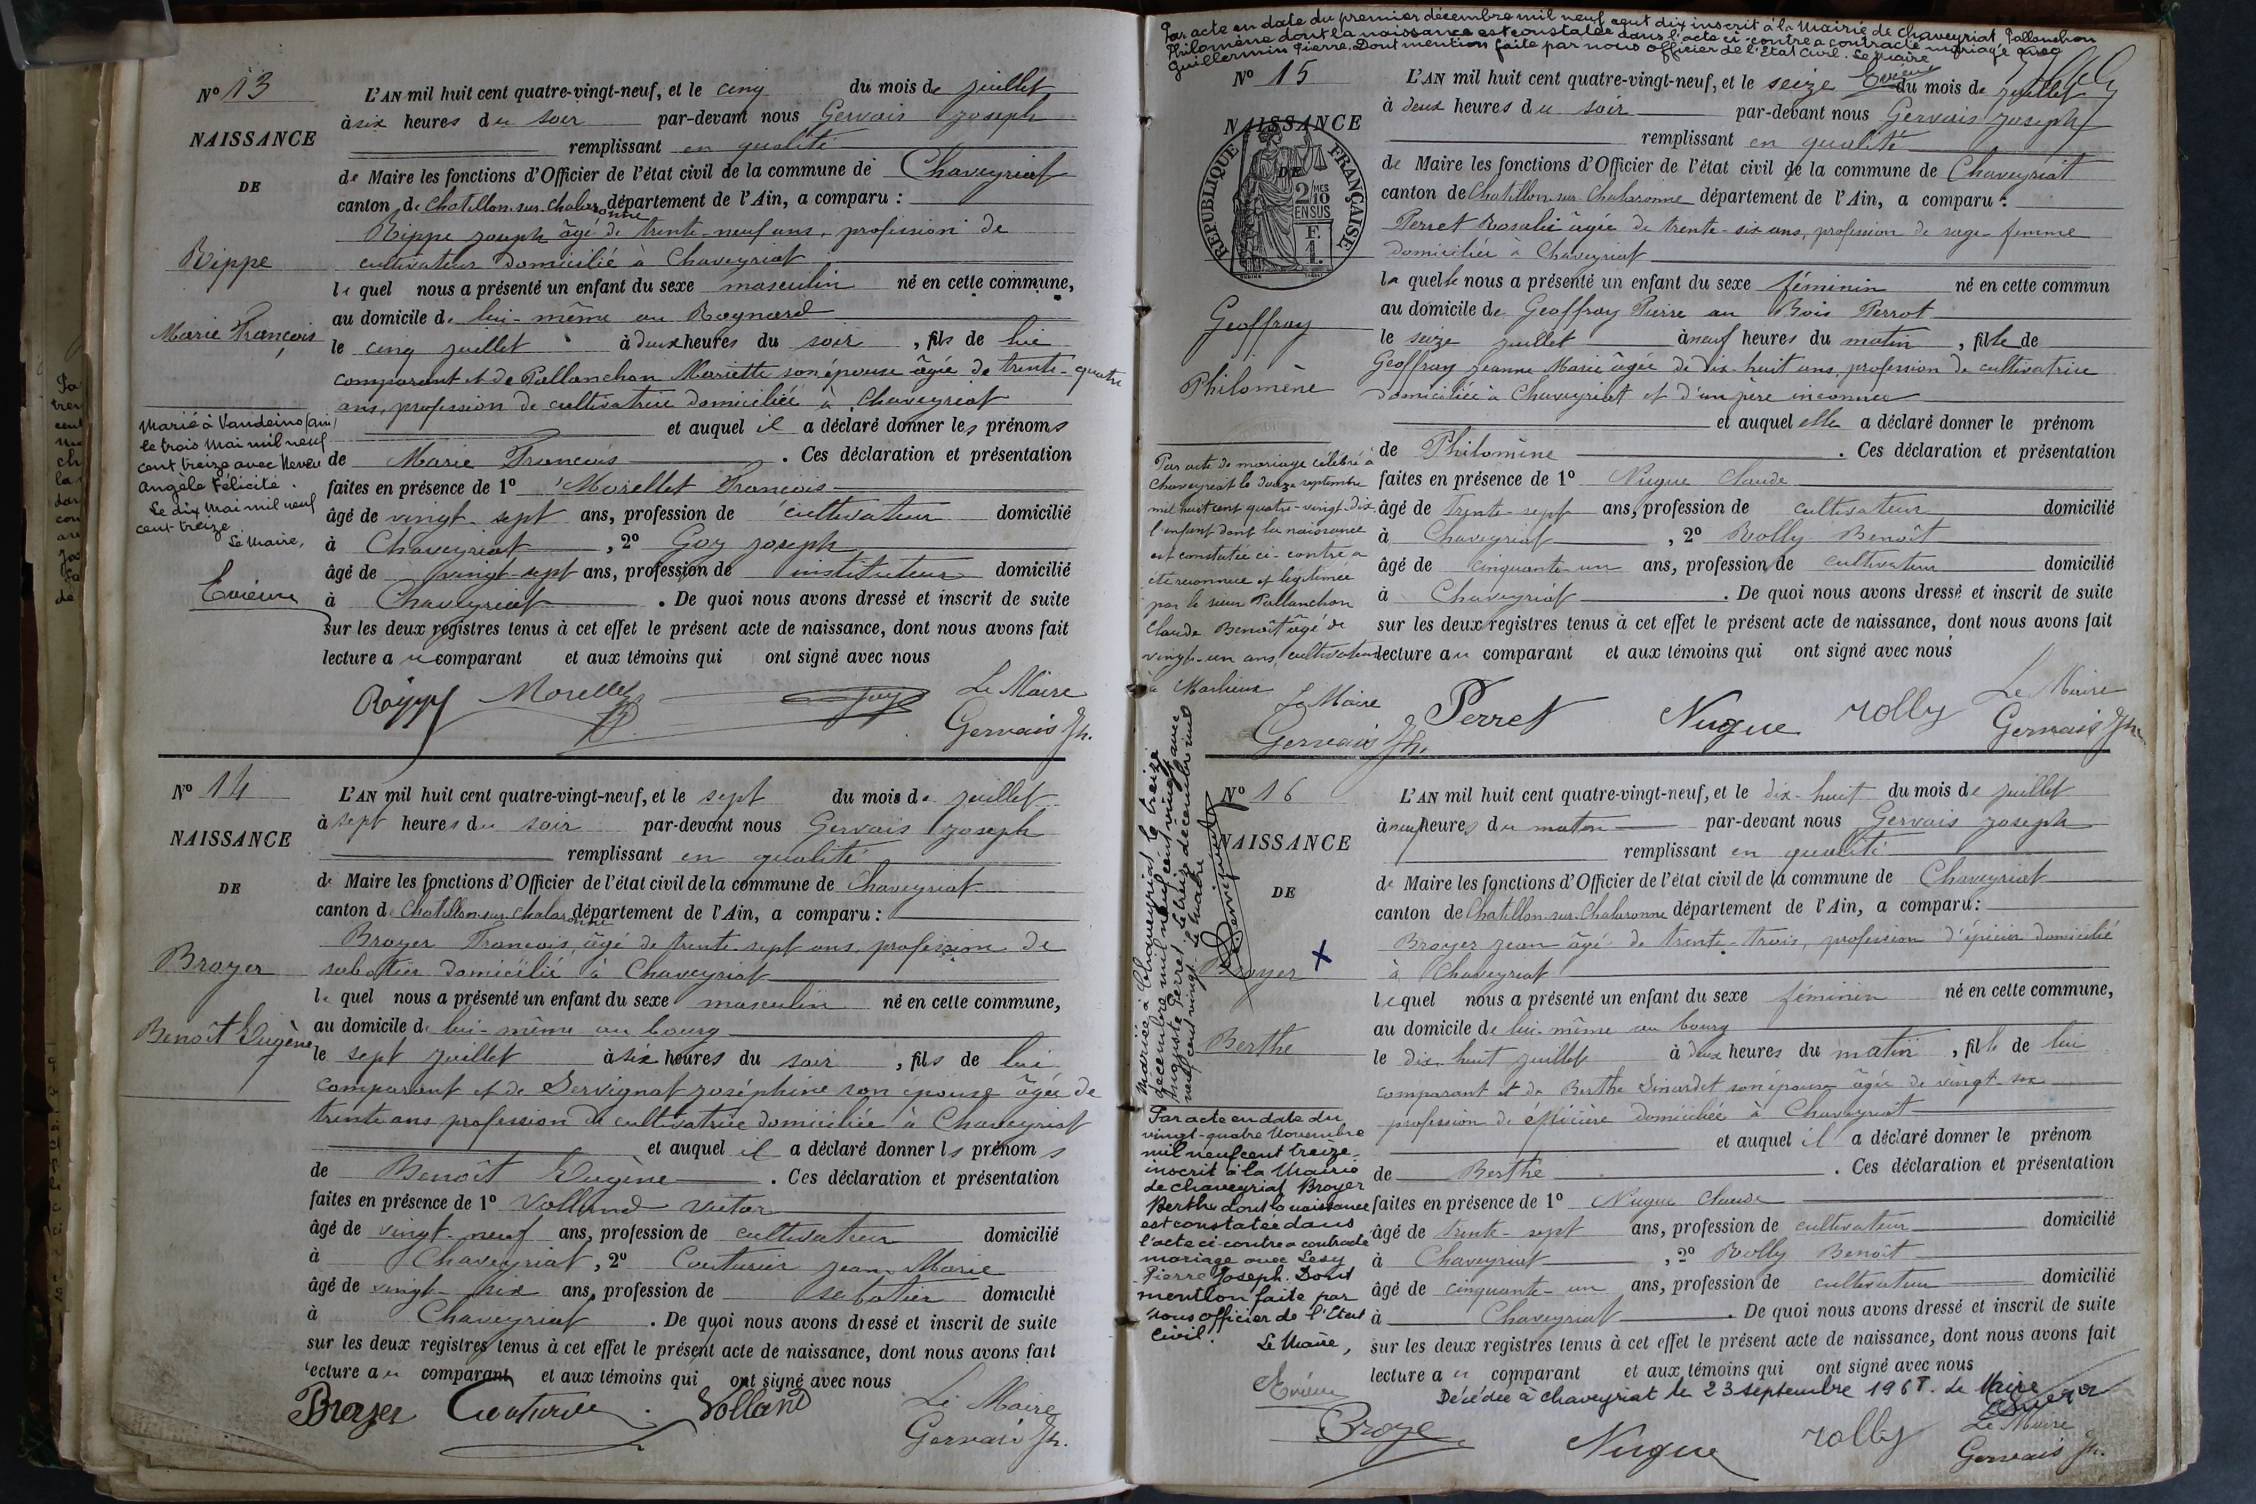 N° 13
NAISSANCE
DE
Rippe
Marie François
Marié à Vandeins (Ain)
le trois Mai mil neuf
cent treize avec Neveu
Angèle Félicité.
Le dix Mai mil neuf
cent treize
Le Maire,
Evieux
L'AN mil huit cent quatre-vingt-neuf, et le cinq du mois de juillet
à six heures du soir par-devant nous Gervais Joseph
remplissant en qualité
de Maire les fonctions d'Officier de l'état civil de la commune de Chaveyriat
canton de Chatillon-sur-Chalaronne département de l'Ain, a comparu :
Rippe Joseph âgé de trente-neuf ans, profession de
cultivateur domicilié à Chaveyriat
lequel nous a présenté un enfant du sexe masculin né en cette commune,
au domicile de lui-même au Raynard
le cinq juillet à deux heures du soir, fils de lui
comparant et de Pallanchon Mariette son épouse âgée de trente-quatre
ans, profession de cultivatrice domiciliée à Chaveyriat
et auquel il a déclaré donner les prénoms
de Marie François. Ces déclaration et présentation
faites en présence de 1° Morellet François
âgé de vingt-sept ans, profession de cultivateur domicilié
à Chaveyriat, 2° Goy Joseph
âgé de vingt-sept ans, profession de instituteur domicilié
à Chaveyriat. De quoi nous avons dressé et inscrit de suite
sur les deux registres tenus à cet effet le présent acte de naissance, dont nous avons fait
lecture au comparant et aux témoins qui ont signé avec nous
Rippe Morellet Goy Le Maire
Gervais Jh.
N° 14
NAISSANCE
DE
Broyer
Benoît Eugène
L'AN mil huit cent quatre-vingt-neuf, et le sept du mois de juillet
à sept heures du soir par-devant nous Gervais Joseph
remplissant en qualité
de Maire les fonctions d'Officier de l'état civil de la commune de Chaveyriat
canton de Chatillon-sur-Chalaronne département de l'Ain, a comparu :
Broyer François, âgé de trente-sept ans, profession de
sabotier domicilié à Chaveyriat
lequel nous a présenté un enfant du sexe masculin né en cette commune,
au domicile de lui-même au bourg
le sept juillet à six heures du soir, fils de lui
comparant et de Servignat Joséphine son épouse âgée de
trente ans profession de cultivatrice domiciliée à Chaveyriat
et auquel il a déclaré donner ls prénoms
de Benoît Eugène. Ces déclaration et présentation
faites en présence de 1° Volland Victor
âgé de vingt-neuf ans, profession de cultivateur domicilié
à Chaveyriat, 2° Couturier Jean Marie
âgé de vingt-six ans, profession de sabotier domicilié
à Chaveyriat. De quoi nous avons dressé et inscrit de suite
sur les deux registres tenus à cet effet le présent acte de naissance, dont nous avons fait
lecture au comparant et aux témoins qui ont signé avec nous
Broyer Couturier Volland Le Maire
Gervais Jh.
Par acte en date du premier décembre mil neuf cent dix inscrit à la Mairie de Chaveyriat Pallanchon
Philomène dont la naissance est constatée dans l'acte ci-contre a contracté mariage avec
Guillermin Pierre. Dont mention faite par nous officier de l'Etat Civil. Le Maire
Evieux
N° 15
NAISSANCE
DE
REPUBLIQUE FRANÇAISE
2/10 MES
EN SUS
F.
1.
Geoffray
Philomène
Par acte de mariage célébré à
Chaveyriat le douze septembre
mil huit cent quatre-vingt-dix
l'enfant dont la naissance
est constatée ci-contre a
été reconnue et légitimée
par le sieur Pallanchon
Claude Benoît âgé de
vingt-un ans, cultivateur
à Marlieux
Le Maire
Gervais Jh.
L'AN mil huit cent quatre-vingt-neuf, et le seize du mois de juillet
à deux heures du soir par-devant nous Gervais Joseph
remplissant en qualité
de Maire les fonctions d'Officier de l'état civil de la commune de Chaveyriat
canton de Chatillon-sur-Chalaronne département de l'Ain, a comparu :
Perret Rosalie âgée de trente-six ans, profession de sage-femme
domiciliée à Chaveyriat
laquelle nous a présenté un enfant du sexe féminin né en cette commun
au domicile de Geoffray Pierre au Bois Perrot
le seize juillet à neuf heures du matin, fille de
Geoffray Jeanne Marie âgée de dix-huit ans, profession de cultivatrice
domiciliée à Chaveyriat et d'un père inconnu
et auquel elle a déclaré donner le prénom
de Philomène. Ces déclaration et présentation
faites en présence de 1° Nugue Claude
âgé de trente-sept ans, profession de cultivateur domicilié
à Chaveyriat, 2° Rolly Benoît
âgé de cinquante-un ans, profession de cultivateur domicilié
à Chaveyriat. De quoi nous avons dressé et inscrit de suite
sur les deux registres tenus à cet effet le présent acte de naissance, dont nous avons fait
lecture au comparant et aux témoins qui ont signé avec nous
Perret Nugue Rolly Le Maire
Gervais Jh.
N° 16
NAISSANCE
DE
Broyer
Berthe
Mariée à Chaveyriat le treize
décembre mil neuf cent vingt avec
Auguste Perret. Le treize décembre mil
neuf cent vingt. Le Maire
Par acte en date du
vingt-quatre Novembre
mil neuf cent treize
inscrit à la Mairie
de Chaveyriat Broyer
Berthe dont la naissance
est constatée dans
l'acte ci-contre a contracté
mariage avec Lesy
Pierre Joseph. Dont
mention faite par
nous officier de l'Etat
Civil.
Le Maire,
Evieux
L'AN mil huit cent quatre-vingt-neuf, et le dix-huit du mois de juillet
à neuf heures du matin par-devant nous Gervais Joseph
remplissant en qualité
de Maire les fonctions d'Officier de l'état civil de la commune de Chaveyriat
canton de Chatillon-sur-Chalaronne département de l'Ain, a comparu :
Broyer Jean âgé de trente-trois, profession d'épicier domicilié
à Chaveyriat
lequel nous a présenté un enfant du sexe féminin né en cette commune,
au domicile de lui-même au bourg
le dix-huit juillet à deux heures du matin, fille de lui
comparant et de Berthe Sinardet son épouse âgée de vingt-six
profession de épicière domiciliée à Chaveyriat
et auquel il a déclaré donner le prénom
de Berthe. Ces déclaration et présentation
faites en présence de 1° Nugue Claude
âgé de trente-sept ans, profession de cultivateur domicilié
à Chaveyriat, 2° Rolly Benoît
âgé de cinquante-un ans, profession de cultivateur domicilié
à Chaveyriat. De quoi nous avons dressé et inscrit de suite
sur les deux registres tenus à cet effet le présent acte de naissance, dont nous avons fait
lecture au comparant et aux témoins qui ont signé avec nous
Décédée à Chaveyriat le 23 septembre 1968. Le Maire
Broye Nugue Rolly Le Maire
Gervais Jh.